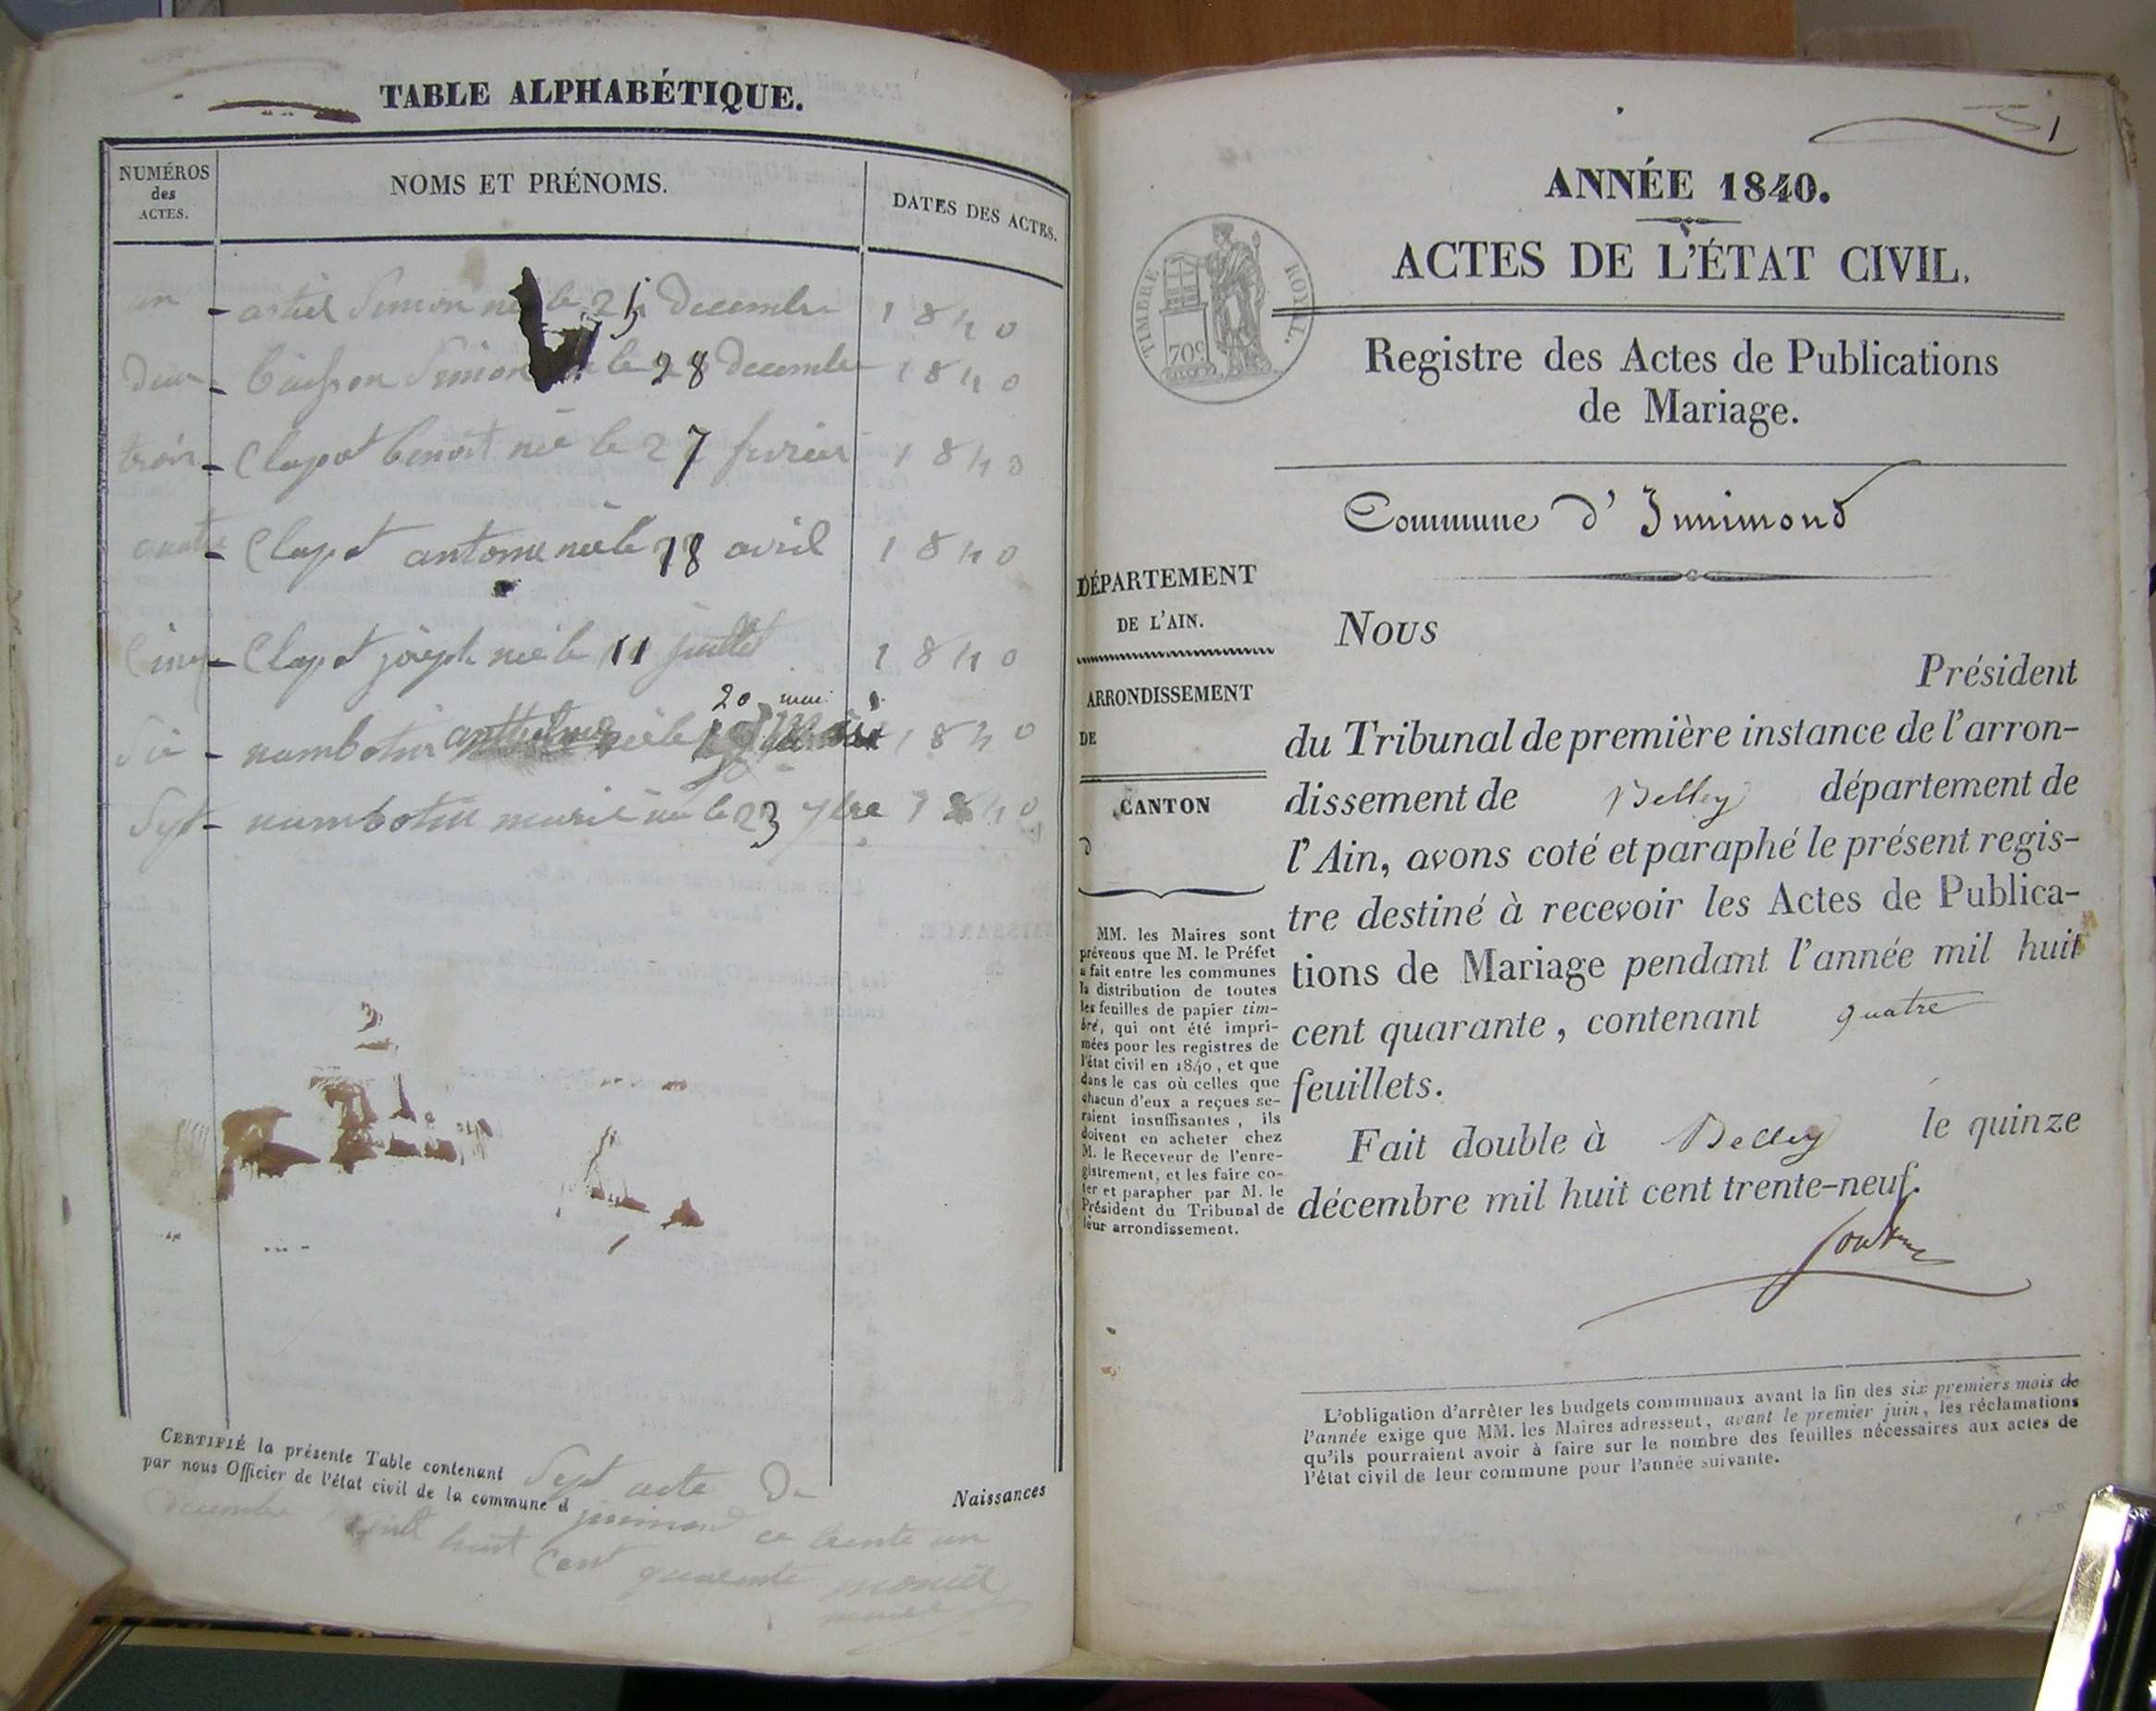 TABLE ALPHABÉTIQUE.
NUMÉROS
des
ACTES.
NOMS ET PRÉNOMS.
DATES DES ACTES.
un - Simon né le 25 Decembre 1840
deux - Simon le 28 Decembre 1840
trois - Clapot benoit née le 27 fevrier 1840
quatre - Clapot antoine née le 18 avril 1840
Cinq - Clapot joseph née le 11 juillet 1840
20 mai
- anthelme née le 1840
Sept - marie née le 23 7bre 1840
CERTIFIÉ la présente Table contenant Sept acte De Naissances
par nous Officier de l'état civil de la commune d
Decembre mil huit cent quarente ce trente un
ANNÉE 1840.
ACTES DE L'ÉTAT CIVIL.
TIMBRE ROYAL.
70c
Registre des Actes de Publications
de Mariage.
Commune d' Innimond
DÉPARTEMENT
DE L'AIN.
ARRONDISSEMENT
DE
CANTON
D
MM. les Maires sont
prévenus que M. le Préfet
a fait entre les communes
la distribution de toutes
les feuilles de papier tim-
bré, qui ont été impri-
mées pour les registres de
l'état civil en 1840, et que
dans le cas où celles que
chacun d'eux a reçues se-
raient insuffisantes, ils
doivent en acheter chez
M. le Receveur de l'enre-
gistrement, et les faire co-
ter et parapher par M. le
Président du Tribunal de
leur arrondissement.
Nous
Président
du Tribunal de première instance de l'arron-
dissement de Belley département de
l'Ain, avons coté et paraphé le présent regis-
tre destiné à recevoir les Actes de Publica-
tions de Mariage pendant l'année mil huit
cent quarante, contenant quatre
feuillets.
Fait double à Belley le quinze
décembre mil huit cent trente-neuf.
L'obligation d'arrêter les budgets communaux avant la fin des six premiers mois de
l'année exige que MM. les Maires adressent, avant le premier juin, les réclamations
qu'ils pourraient avoir à faire sur le nombre des feuilles nécessaires aux actes de
l'état civil de leur commune pour l'année suivante.